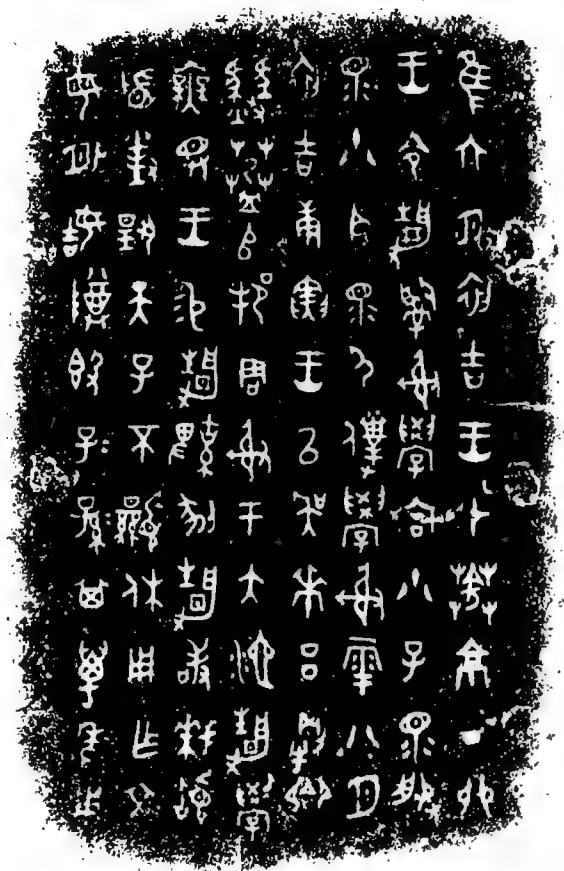 隹六月初吉王才䒤京丁卯
王令靜𤔲射學宮小子眔服
眔小臣眔尸僕學射𩁹八月
初吉庚寅王以吳𠦪呂犅卿
豳䓊𠂤邦周射于大池靜學
無斁王易靜鞞剢靜敢拜𩒨
首對揚天子不顯休用乍文
母外姞尊簋子=孫=其萬年用